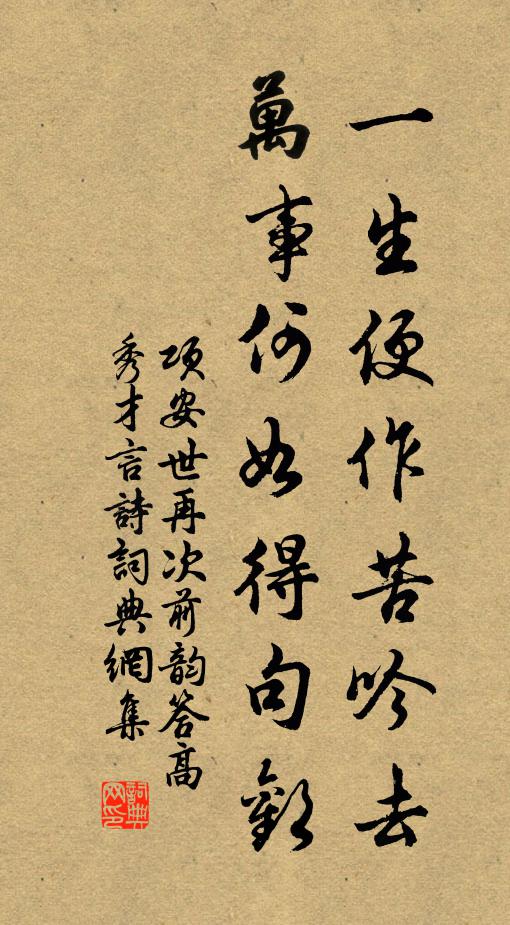 一生便作苦吟去
萬事何如得句歡
項安世再次前韵答高
秀才言詩詞典網集
詞典网印